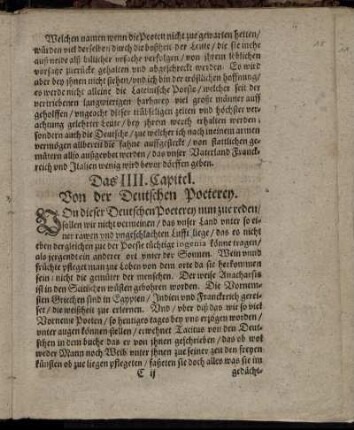 Welchen namen wenn die Poeten nicht zue gewarten hetten/
würden viel derselben durch die boßheit der Leute/ die sie mehr
auß neide als billicher vrsache verfolgen/ von jhrem löblichen
vorsatze zuerücke gehalten vnd abgeschreckt werden. Es wird
aber bey jhnen nicht stehen/ vnd ich bin der tröstlichen hoffnung/
es werde nicht alleine die Lateinische Poesie/ welcher seit der
vertriebenen langwierigen barbarey viel große männer auff
geholffen/ vngeacht dieser trübseligen zeiten vnd höchster ver-
achtung gelehrter Leute/ bey jhrem werth erhalten werden;
sondern auch die Deutsche/ zue welcher ich nach meinem armen
vermögen allbereit die fahne auffgesteckt/ von stattlichen ge-
mütern allso außgeübet werden/ das vnser Vaterland Franck-
reich vnd Italien wenig wird bevor dörffen geben.
Das IIII. Capitel.
Von der Deutschen Poeterey.
VOn dieser Deutschen Poeterey nun zue reden/
sollen wir nicht vermeinen/ das vnser Land vnter so ei-
ner rawen vnd vngeschlachten Lufft liege/ das es nicht
eben dergleichen zue der Poesie tüchtige ingenia könne tragen/
als jergendt ein anderer ort vnter der Sonnen. Wein vnnd
früchte pfleget man zue loben von dem orte da sie herkommen
sein; nicht die gemüter der menschen. Der weise Anacharsis
ist in den Scitischen wüsten gebohren worden. Die Vornem-
sten Griechen sind in Egypten/ Indien vnd Franckreich gerei-
set/ die weißheit zue erlernen. Vnd/ vber diß das wir so viel
Vorneme Poeten/ so heutiges tages bey vns erzogen worden/
vnter augen können stellen/ erwehnet Tacitus von den Deut-
schen in dem buche das er von jhnen geschrieben/ das ob wol
weder Mann noch Weib vnter jhnen zue seiner zeit den freyen
künsten ob zue liegen pflegeten/ faßeten sie doch alles was sie im
C ij gedächt-